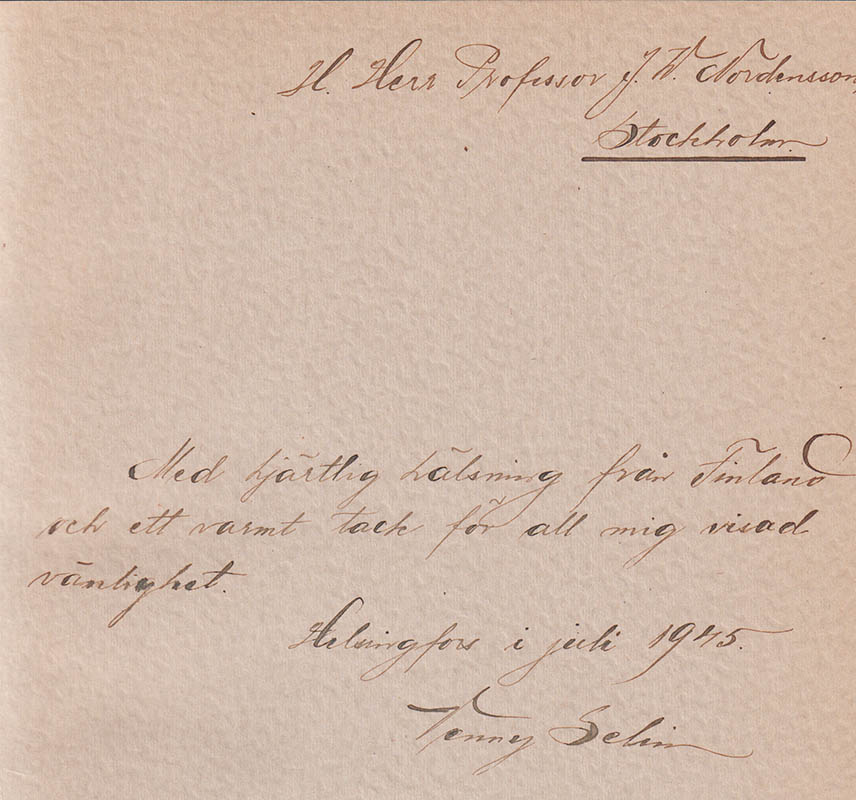 H. Herr Professor J. W. Nordensson,
Stockholm.
Med hjärtlig hälsning från Finland
och ett varmt tack för all mig visad
vänlighet.
Helsingfors i juli 1945.
Venny Selin